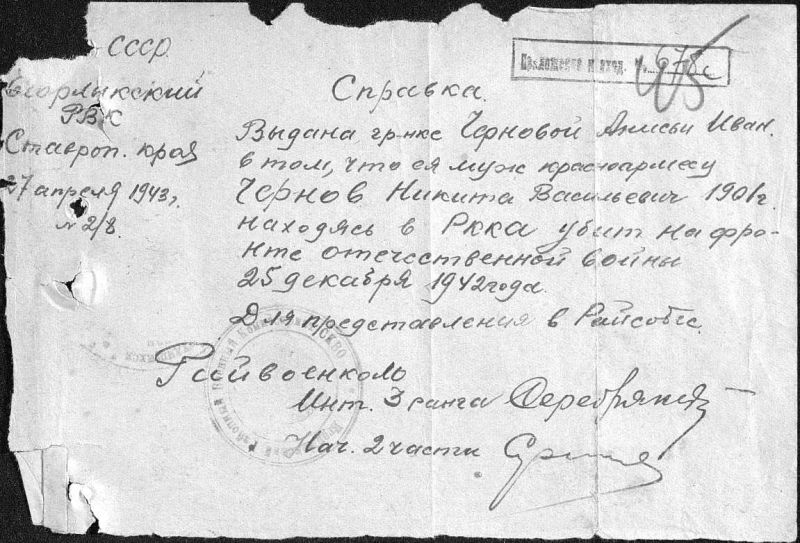 СССР
Егорлыкский
РВК
Ставроп. края
27 апреля 1943 г.
№ 2/8.
678с
Справка.
Выдана гр-нке Черновой Анисьи Иван.
в том, что ея муж красноармеец
Чернов Никита Васильевич 1901 г.
находясь в Ркка убит на фро-
нте отечественной войны
25 декабря 1942 года.
Для представления в Райсобес.
Райвоенком
Инт. 3 ранга
Нач. 2 части